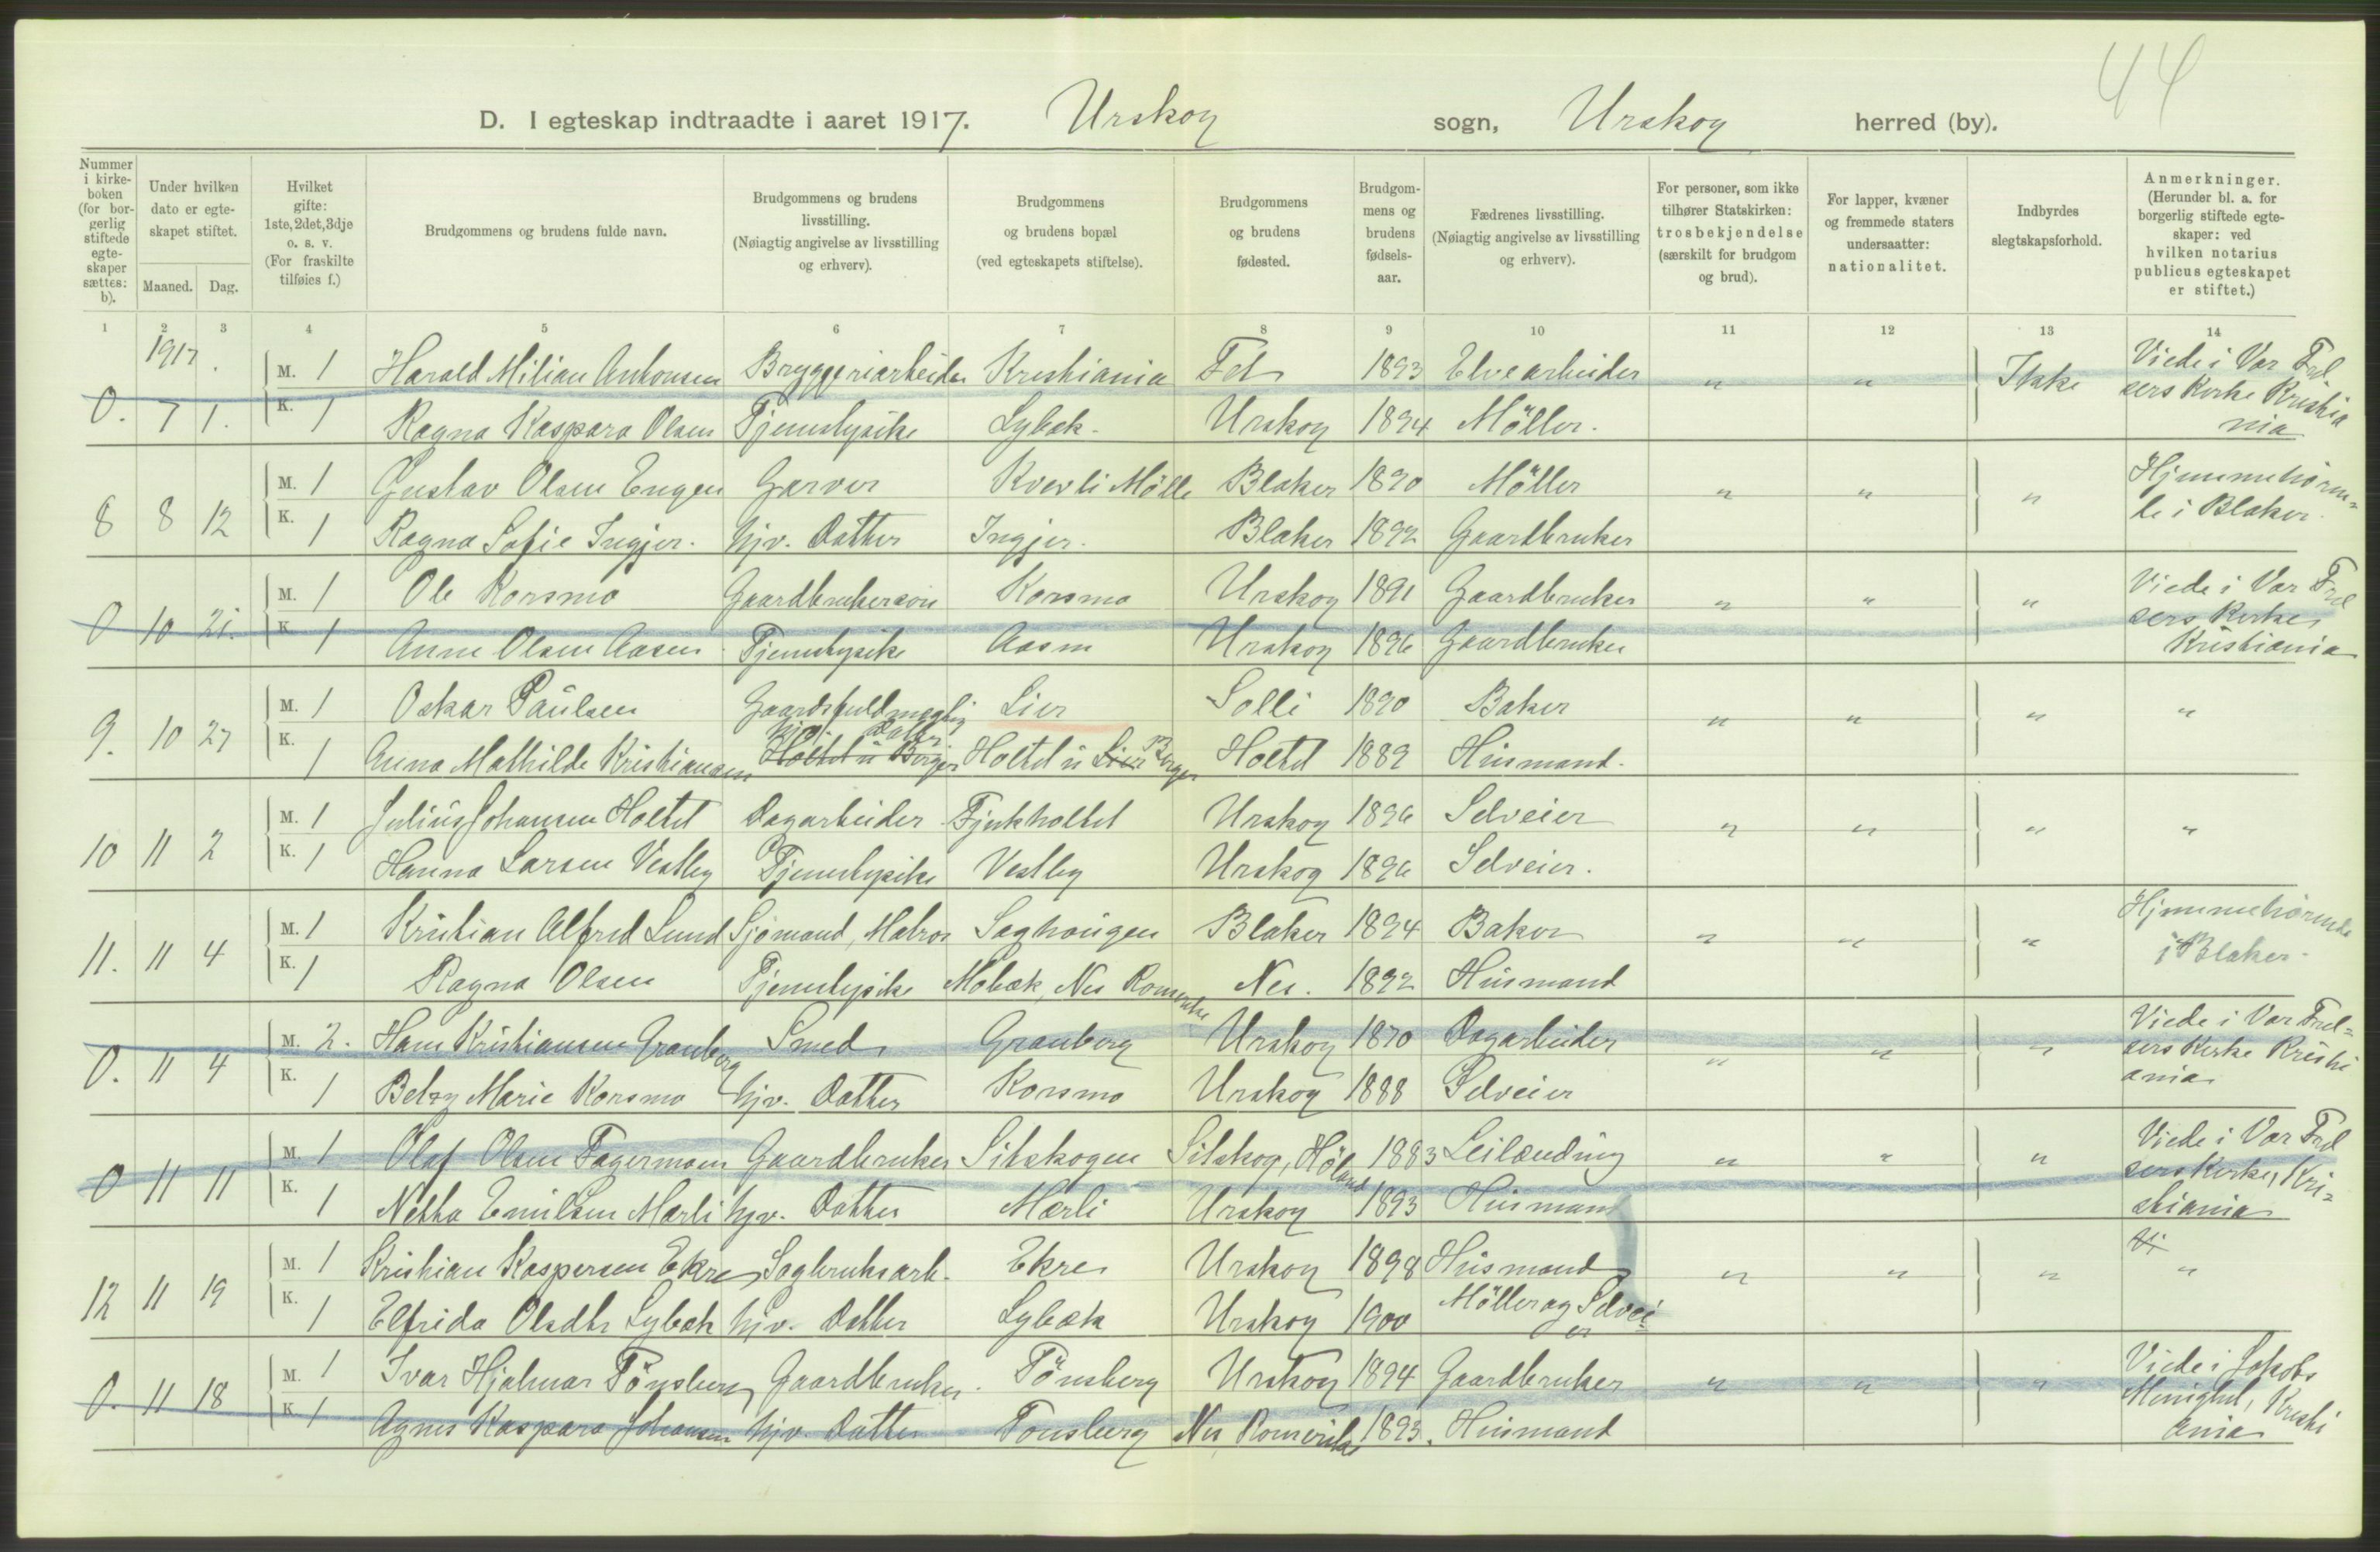 44
D. I egteskap indtraadte i aaret 1917. Urskog sogn, Urskog herred (by).
Nummer i kirke-boken (for bor-gerlig stiftede egte-skaper sættes: b).
Under hvilken dato er egte-skapet stiftet.
Maaned. Dag.
Hvilket gifte: 1ste, 2det, 3dje o. s. v. (For fraskilte tilføies f.)
Brudgommens og brudens fulde navn.
Brudgommens og brudens livsstilling. (Nøiagtig angivelse av livsstilling og erhverv).
Brudgommens og brudens bopæl (ved egteskapets stiftelse).
Brudgommens og brudens fødested.
Brudgom-mens og brudens fødsels-aar.
Fædrenes livsstilling. (Nøiagtig angivelse av livsstilling og erhverv).
For personer, som ikke tilhører Statskirken: trosbekjendelse (særskilt for brudgom og brud).
For lapper, kvæner og fremmede staters undersaatter: nationalitet.
Indbyrdes slegtskapsforhold.
Anmerkninger. (Herunder bl. a. for borgerlig stiftede egte-skaper: ved hvilken notarius publicus egteskapet er stiftet.)
1 2 3 4 5 6 7 8 9 10 11 12 13 14
1917.
M. 1 Harald Milian Anhonsen Bryggeriarbeider Kristiania Fet 1893 Elvearbeider " " Ikke Viede i Vor Frel
sers Kirke Kristia
0. 7 1. K. 1 Ragna Kaspara Olsen Tjenestepike Lybæk. Urskog 1894 Möller. nia
M. 1 Gustav Olsen Engen Garver Kverli Mölle Blaker 1890 Möller " " " Hjemmehören=
8 8 12 K. 1 Ragna Sofie Ingjer. hjv. Datter Ingjer. Blaker 1892 Gaardbruker de i Blaker.
M. 1 Ole Korsmo Gaardbrukersön Korsmo Urskog 1891 Gaardbruker " " " Viede i Vor Frel
sers Kirke,
0 10 21. K. 1 Anne Olsen Aasen Tjenestepike Aasen Urskog 1896 Gaardbruker Kristiania
M. 1 Oskar Paulsen Gaardsfuldmægtig Lier Solli 1890 Baker " " " "
hjv. Datter
9. 10 27 K. 1 Anna Mathilde Kristiansen Holtet u Berger Holtet u Lier Berger Holtet 1889 Husmand.
M. 1 Julius Johansen Holtet Dagarbeider Fjukholtet Urskog 1896 Selveier " " " "
10 11 2 K. 1 Hanna Larsen Vestby Tjenestepike Vestby Urskog 1896 Selveier.
M. 1 Kristian Alfred Lund Sjömand, Matros Saghaugen Blaker 1894 Baker " " " Hjemmehörende
11. 11 4 K. 1 Ragna Olsen Tjenestepike Mobæk, Nes Romerike Nes. 1892 Husmand i Blaker.
M. 2. Hans Kristiansen Granberg Smed Granberg Urskog 1870 Dagarbeider " " " Viede i Vor Frel=
sers Kirke Kristi
0. 11 4 K. 1 Betzy Marie Korsmo hjv. Datter Korsmo Urskog 1888 Selveier ania
M. 1 Olaf Olsen Fagermoen Gaardbruker Sitskogen Sitskog, Höland 1883 Leilænding " " " Viede i Vor Frel
sers Kirke, Kri=
0 11 11 K. 1 Netta Emilsen Mærli hjv. Datter Mærli Urskog 1893 Husmand stiania
M. 1 Kristian Kaspersen Ekre Sagbruksarb. Ekre Urskog 1898 Husmand " " " Vi "
12 11 19 K. 1 Elfrida Olsdtr Lybæk hjv. Datter Lybæk Urskog 1900 Möller og Selvei=
er
M. 1 Ivar Hjalmar Tönsberg Gaardbruker. Tönsberg Urskog 1894 Gaardbruker " " " Viede i Jakobs
Menighet, Kristi
0. 11 18 K. 1 Agnes Kaspara Johansen hjv. Datter Tönsberg Nes Romerike 1893. Husmand ania